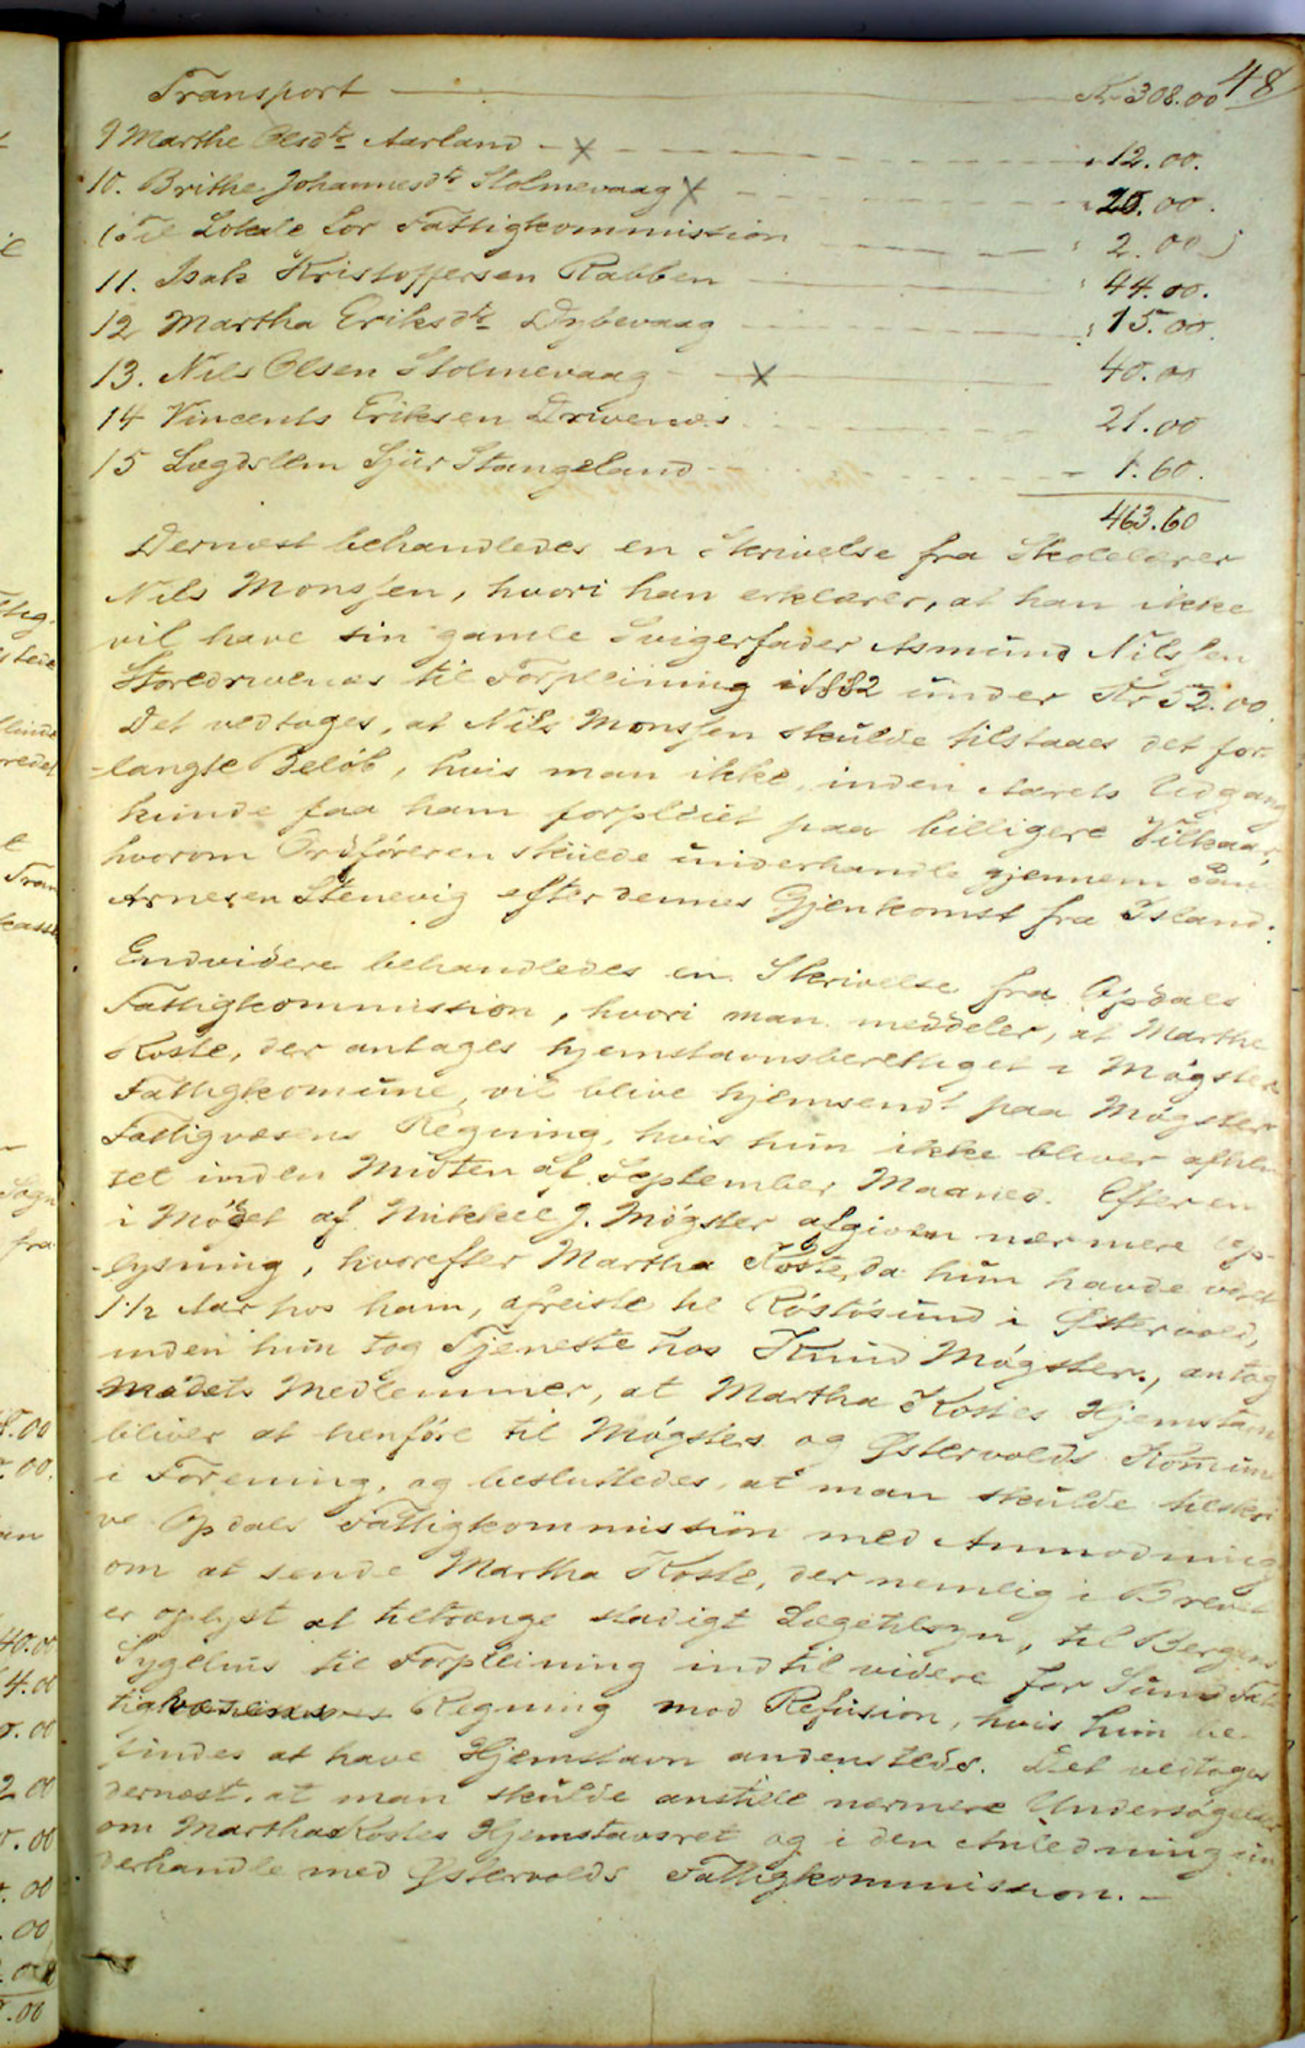 48
Transport Kr 308.00
9 Marthe Olsdtr Aarland - x " 12.00.
10. Brithe Johannesdtr Stolmevaag x " 20.00.
(Til Lokale for Fattigkommission " 2.00)
11. Isak Kristoffersen Rabben " 44.00.
12 Martha Eriksdtr Dybevaag " 15.00.
13. Nils Olsen Stolmevaag - x 40.00
14 Vincents Eriksen Drivenæs 21.00
15 Lægdslem Sjur Stangeland - 1.60.
463.60
Dernæst behandledes en Skrivelse fra Skolelærer
Nils Monssen, hvori han erklærer, at han ikke
vil have sin gamle Svigerfader Asmund Nilssen
Storedrivenæs til Forpleining i 1882 under Kr 52.00.
Det vedtoges, at Nils Monssen skulde tilstaaes det for-
-langte Beløb, hvis man ikke inden Aarets Udgang
kunde faa ham forpleiet paa billigere Vilkaar,
hvorom Ordføreren skulde underhandle gjennem
Arnesen Stenevig efter dennes Gjenkomst fra Island.
Endvidere behandledes en Skrivelse fra Opdals
Fattigkommission, hvori man meddeler, at Marthe
Koste, der antages hjemstavnsberettiget i Møgster
Fattigkomune, vil blive hjemsendt paa Møgster
Fattigvæsens Regning, hvis hun ikke bliver afhen
tet inden Midten af September Maaned. Efter en
i Mødet af Mikkel J. Møgster afgiven nærmere op-
-lysning, hvorefter Martha Koste, da hun havde været
1 1/2 Aar hos ham, afreiste til Röstösund i Østervold,
inden hun tog Tjeneste hos Knud Møgster, antog
Mødets Medlemmer, at Martha Kostes Hjemstavn
bliver at henføre til Møgsters og Østervolds Komune
i Forening, og besluttedes, at man skulde tilskri
ve Opdals Fattigkommission med Anmodning
om at sende Martha Koste, der nemlig i Brevet
er oplyst at tiltrænge stadigt Lægetilsyn, til Bergens
Sygehus til Forpleining indtil videre for Sunds Fat
tigvæsens Regning mod Refusion, hvis hun be-
findes at have Hjemstavn andensteds. Det vedtoges
dernæst, at man skulde anstille nærmere Undersøgelser
om Martha Kostes Hjemstavsret og i den Anledning un
derhandle med Østervolds Fattigkommission. -